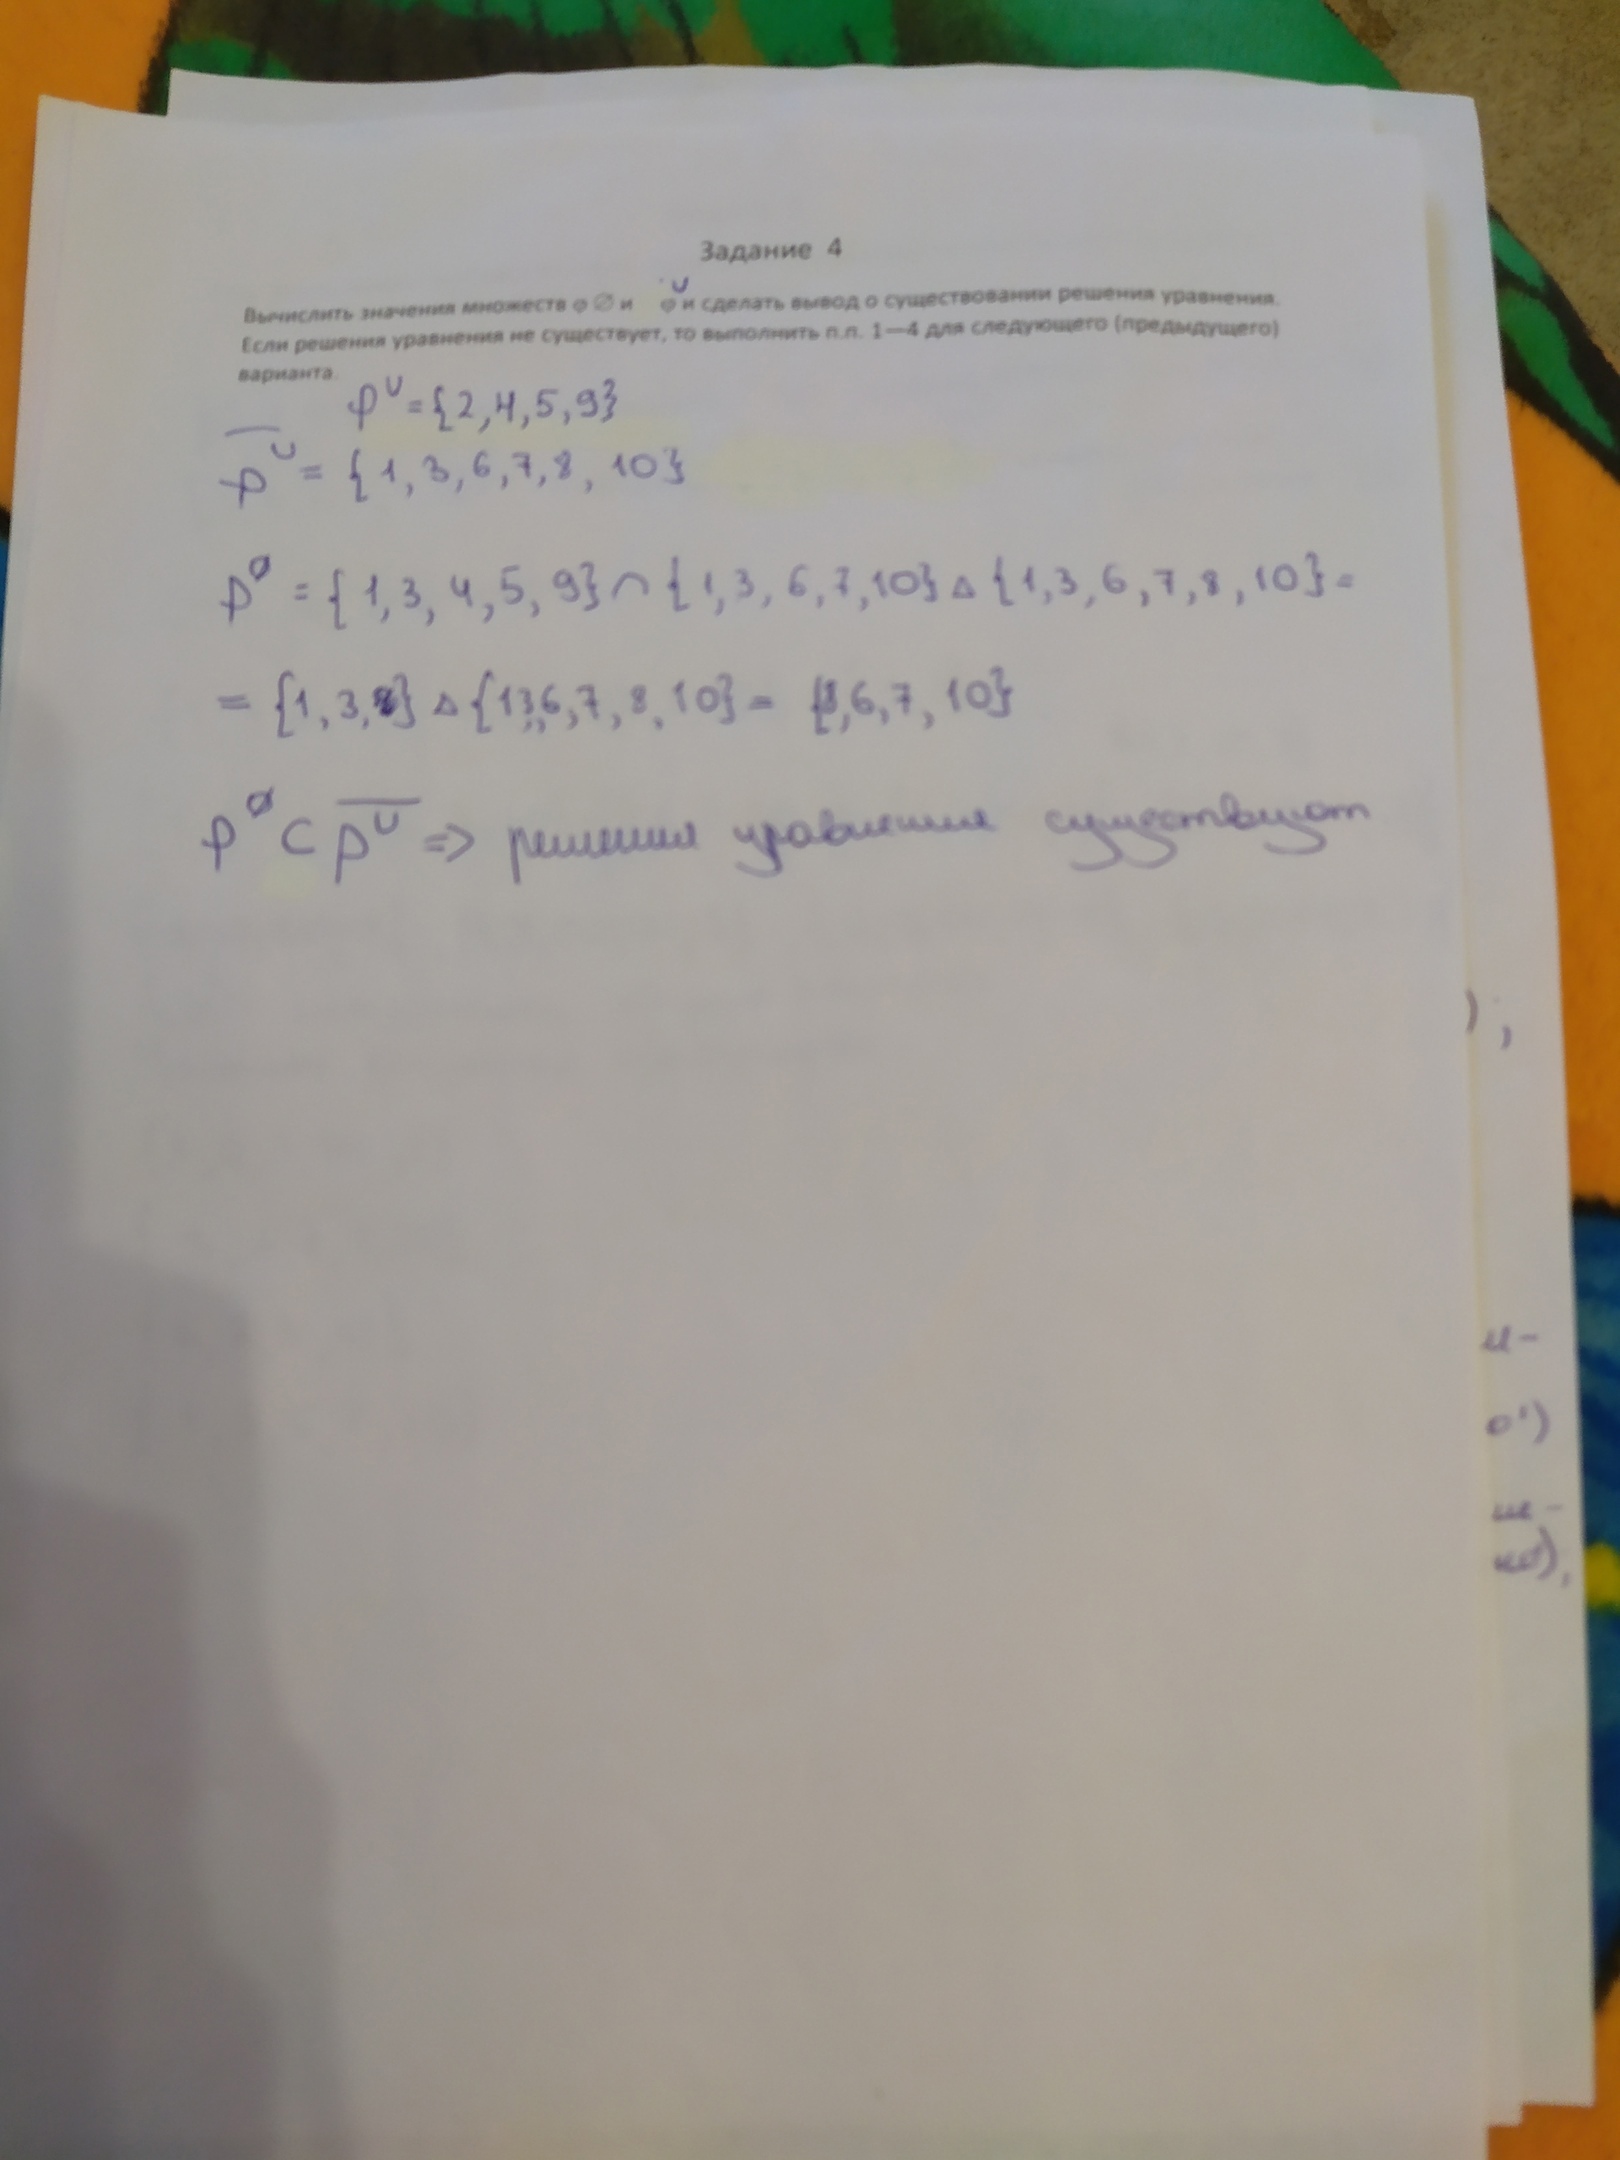 Задание 4
U
Вычислить значения множеств φ ∅ и φ и сделать вывод о существовании решения уравнения.
Если решения уравнения не существует, то выполнить п.п. 1—4 для следующего (предыдущего)
варианта.
φ^U = {2,4,5,9}
\overline{φ}^U = {1,3,6,7,8,10}
φ^∅ = {1,3,4,5,9} ∩ {1,3,6,7,10} △ {1,3,6,7,8,10} =
= {1,3,8} △ {1,3,6,7,8,10} = {6,7,10}
φ^∅ ⊂ \overline{φ^U} => решения уравнения существуют
);
и-
о')
ше-